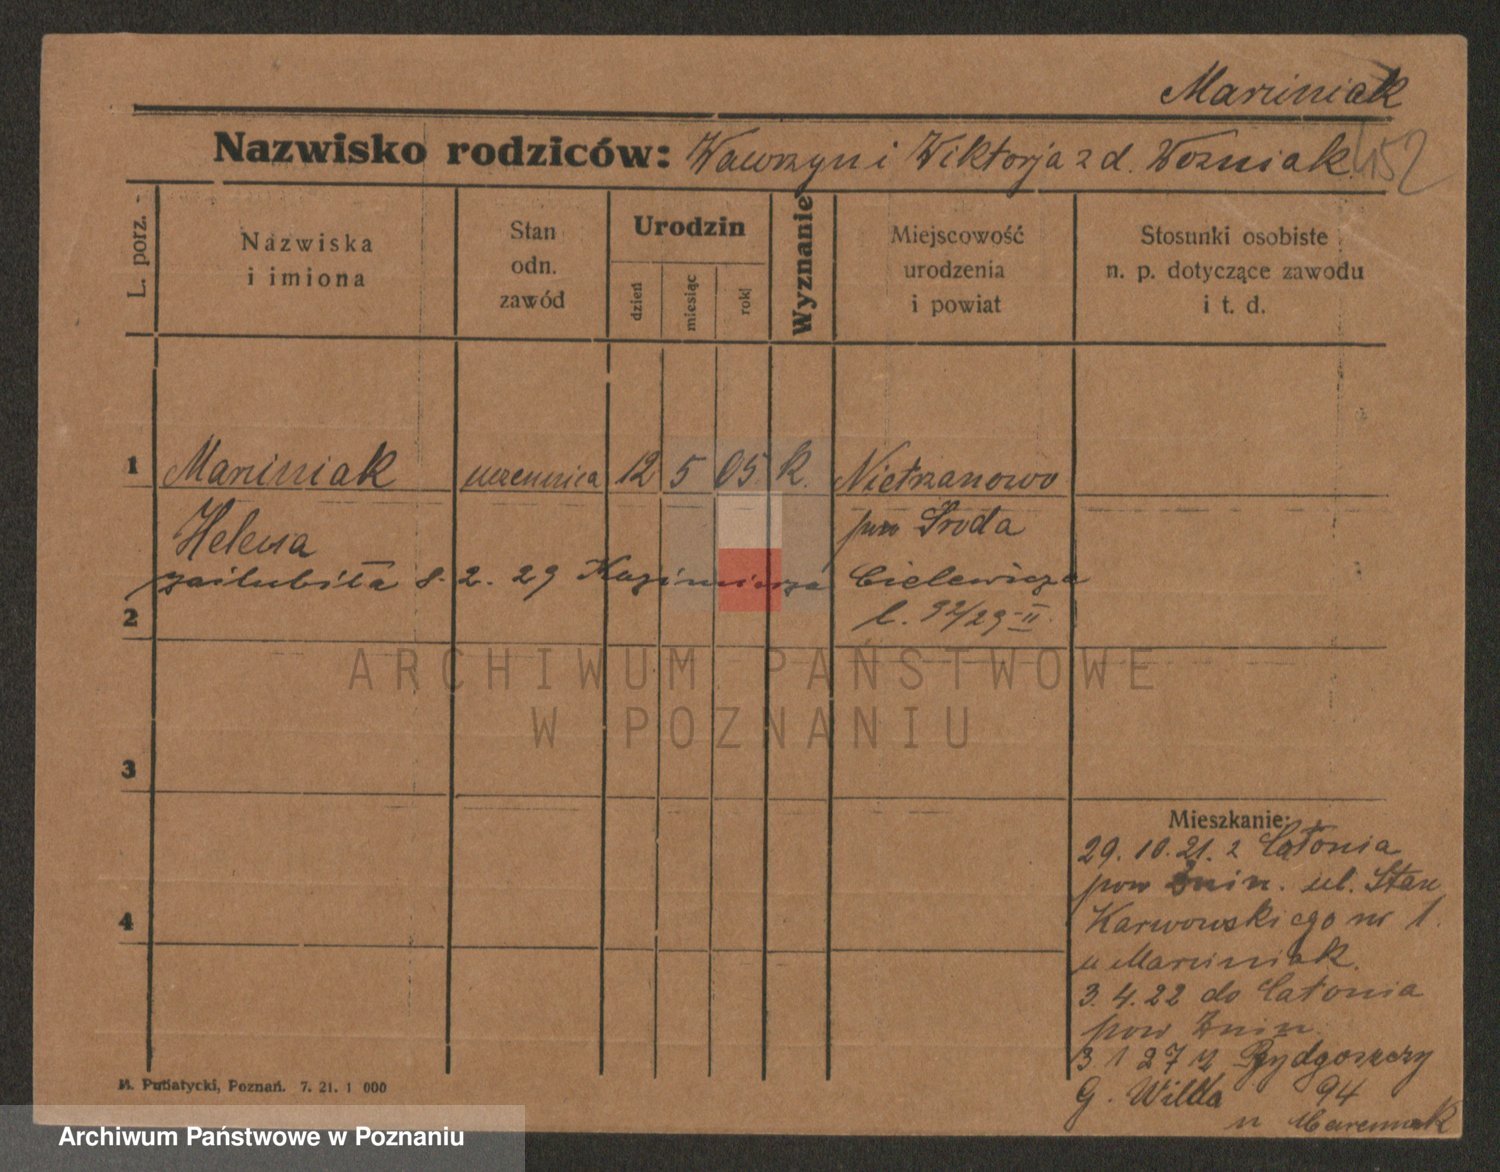 Marciniak
Nazwisko rodziców: Wawrzyn i Wiktorja z d. Woźniak 152
L. porz.
Nazwiska
i imiona
Stan
odn.
zawód
Urodzin
dzień
miesiąc
rok
Wyznanie
Miejscowość
urodzenia
i powiat
Stosunki osobiste
n. p. dotyczące zawodu
i t. d.
1 Marciniak uczennica 12 5 05. k. Nietrzanowo
Helena pow Środa
zaślubiła 8. 2. 29 Kazimierza Cielewicza
2 l. 92/29 II
ARCHIWUM PAŃSTWOWE
W POZNANIU
3
4
Mieszkanie:
29. 10. 21. z
pow Żnin. ul.
Karwowskiego nr 1.
u Marciniak.
3. 4. 22 do
pow Żnin
3 1 27 z Bydgoszczy
G. Wilda 94
u Marciniak
M. Putiatycki, Poznań. 7. 21. 1 000
Archiwum Państwowe w Poznaniu